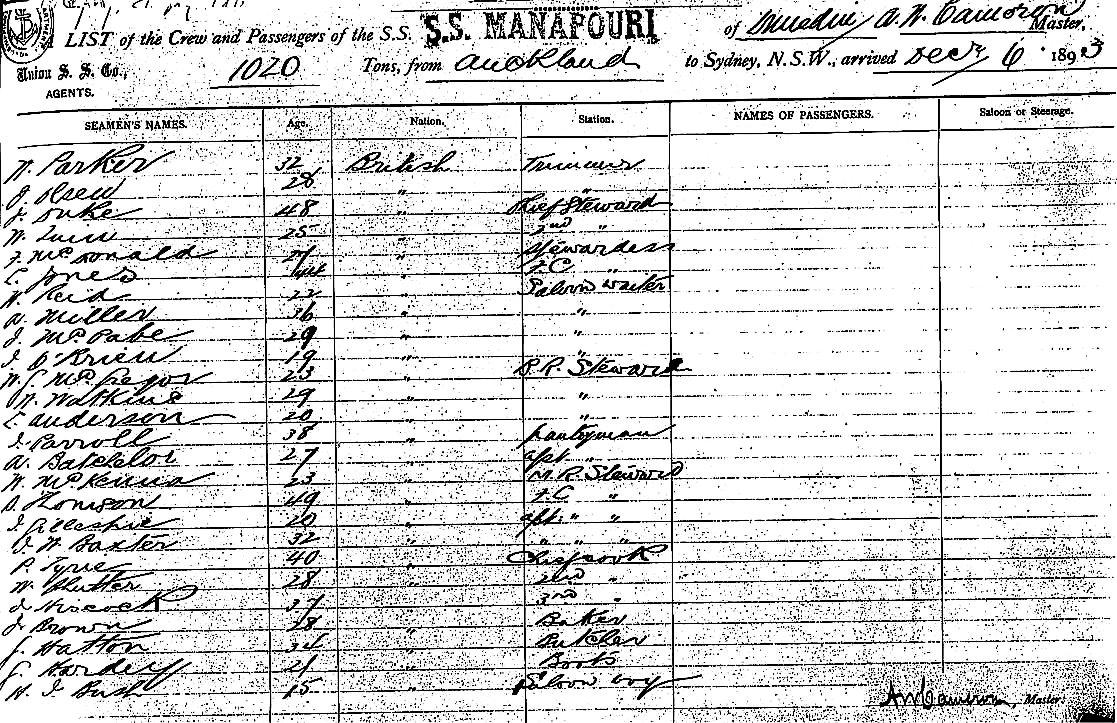 LIST of the Crew and Passengers of the S.S. S.S. MANAPOURI of Dunedin A. W. Cameron Master.
Union S. S. Co., 1020 Tons, from Auckland to Sydney, N.S.W., arrived Decr 6 1893
AGENTS.
SEAMEN'S NAMES. Age. Nation. Station. NAMES OF PASSENGERS. Saloon or Steerage.
W. Parker 32 British Trimmer
J. Olsen 28 " "
J. Duke 48 " Chief Steward
W. Quin 25 " 2nd "
F. McDonald 27 " Stewardess
C. Jones " F.C. "
W. Reid 22 " Saloon Waiter
A. Miller 36 " "
J. McCabe 29 " "
J. O'Brien 19 " "
W. G. McGregor 23 " B.R. Steward
W. Watkins 29 " "
C. Anderson 20 " "
J. Carroll 38 " Pantryman
A. Batchelor 27 " aft "
W. McKenna 23 " M.R. Steward
D. Thomson 49 " F.C. "
J. Gillespie 20 " aft " "
J. W. Baxter 32 " " " "
P. Tyne 40 " Chief cook
W. Shutter 28 " 2nd "
J. Hiscock 37 " 3rd "
J. Brown 28 " Baker
J. Hatton 34 " Butcher
G. Hardey 21 " Boots
H. J. Bush 15 " Saloon boy
A W Cameron, Master.